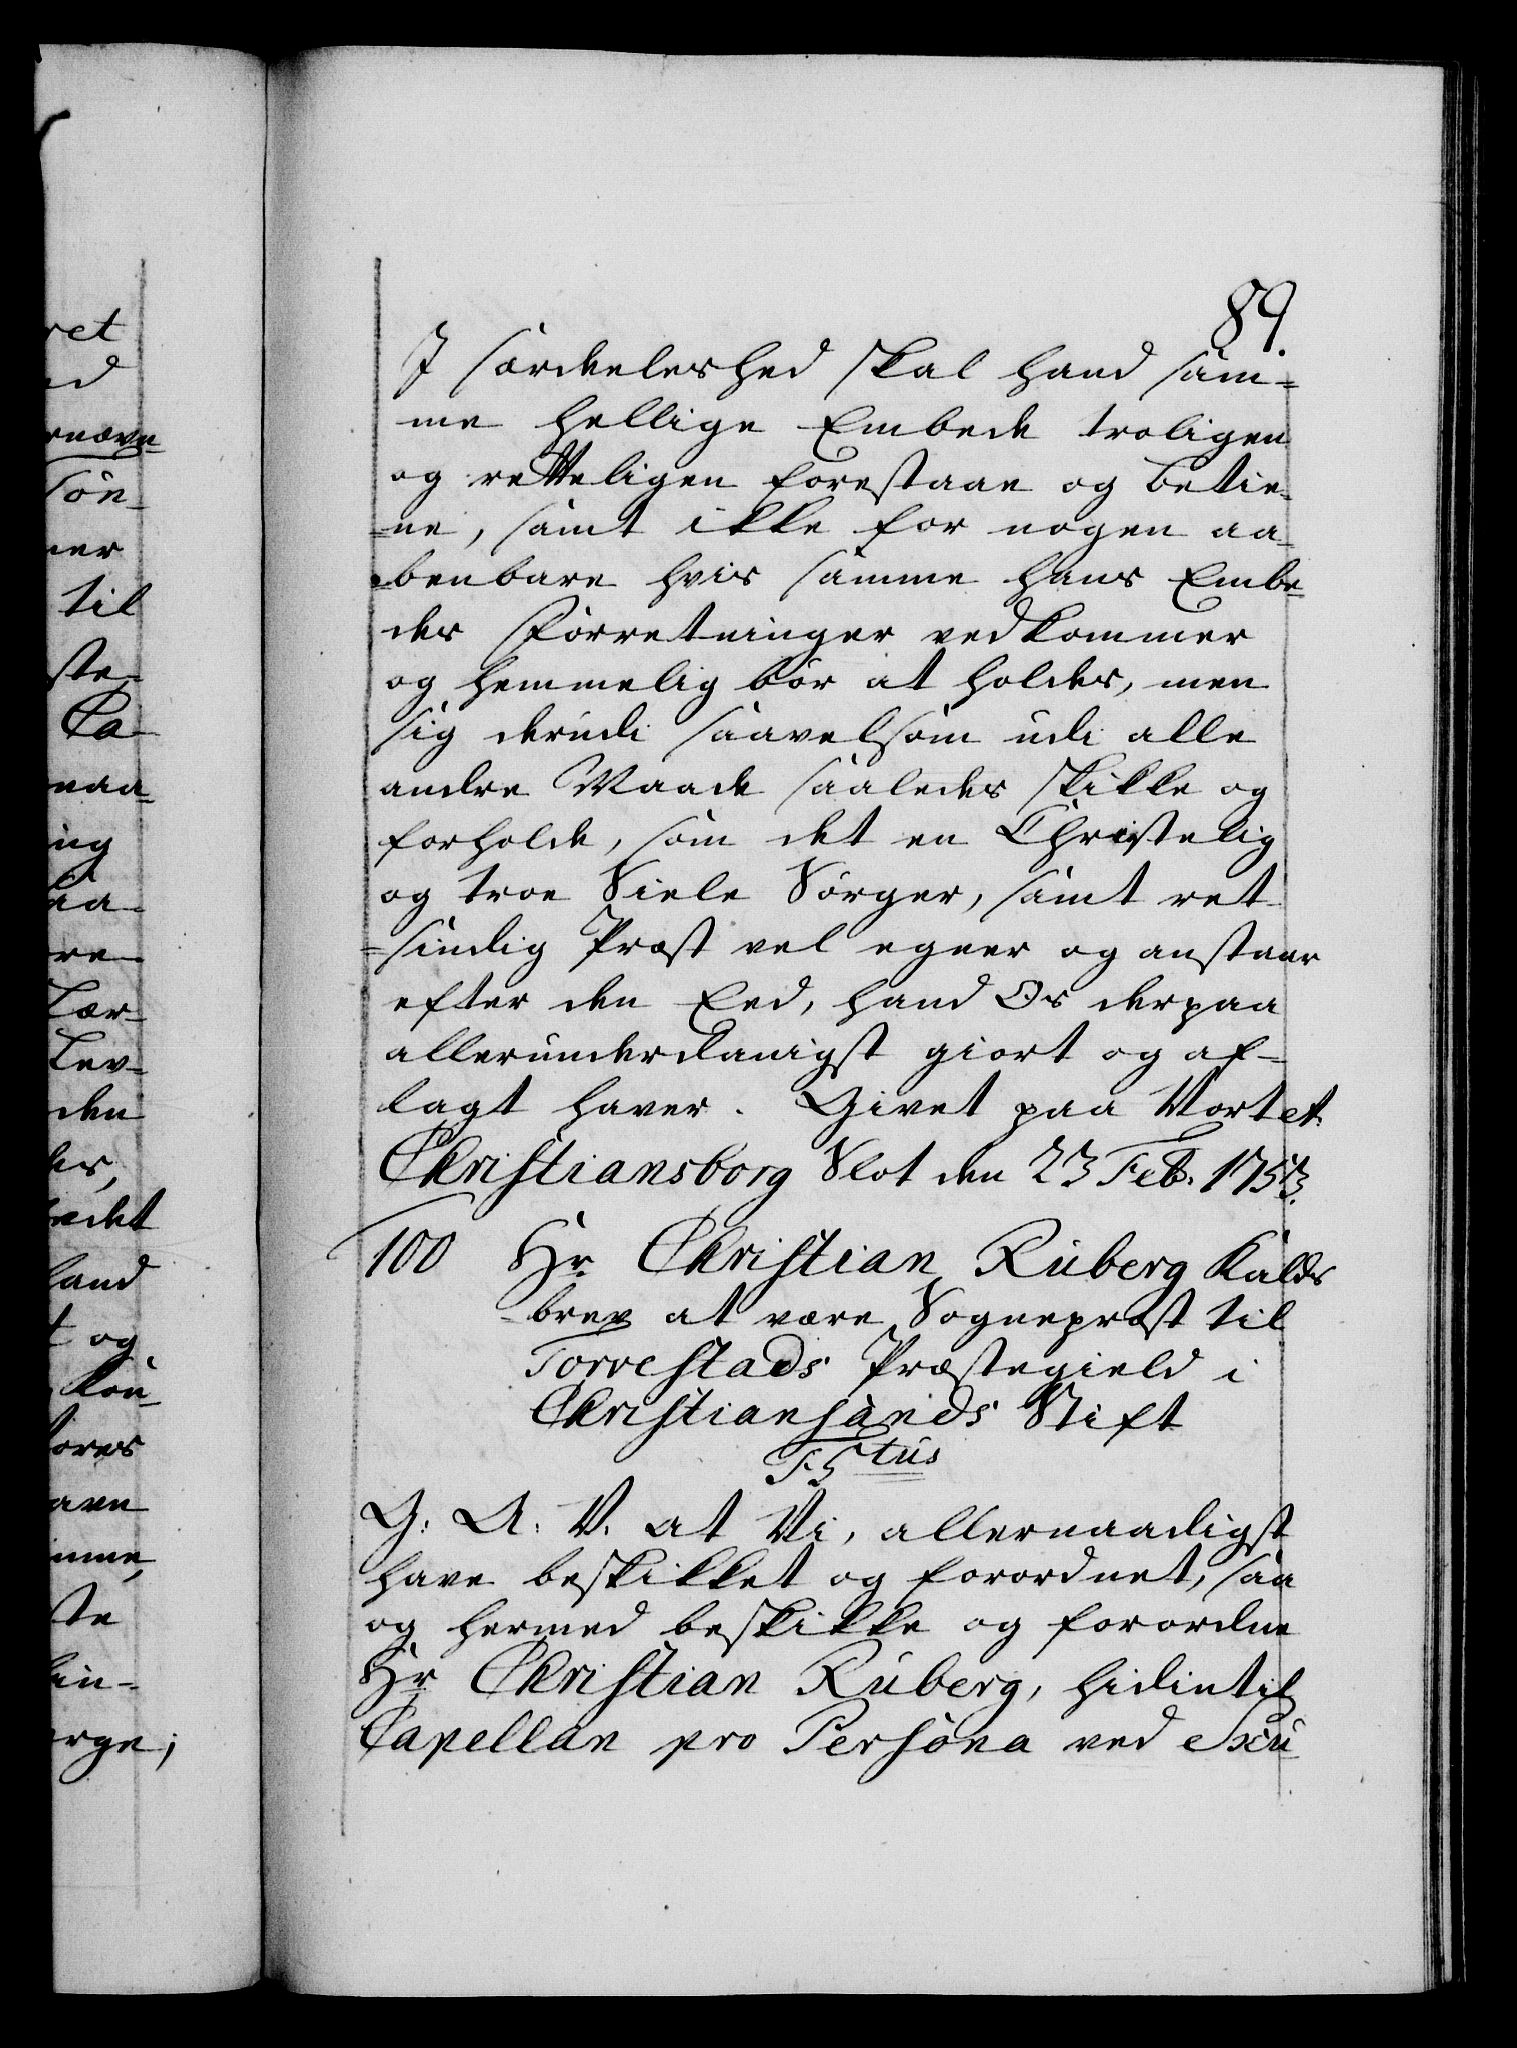 89.
I særdeleshed skal hand sam-
me hellige Embede troligen
og retteligen forestaae og betie-
=ne, samt ikke for nogen aa-
=benbare hvis samme hans Embe-
des Forretninger vedkommer
og hemmelig bør at holdes, men
sig derudi saavelsom udi alle
andre Maade saaledes skikke og
forholde, som det en Christelig
og troe Siele Sørger, samt ret-
=sindig Præst vel egner og anstaaer
efter den Eed, hand Os derpaa
allerunderdanigst giort og af-
lagt haver. Givet paa Vortet
Christiansborg Slot den 23 Feb. 1753.
100 Hr Christian Ruberg Kalds
-brev at være Sognepræst til
Torvestads Præstegield i
Christiansands Stift
F. 5 tus
G: A: V. at Vi, allernaadigst
have beskikket og forordnet, saa
og hermed beskikke og forordne
Hr Christian Ruberg, hidintil
Capellan pro Persona ved
ret
til
ste-
Ca-
naa-
ing
re-
Lær-
Lev-
den
hand
og
ste